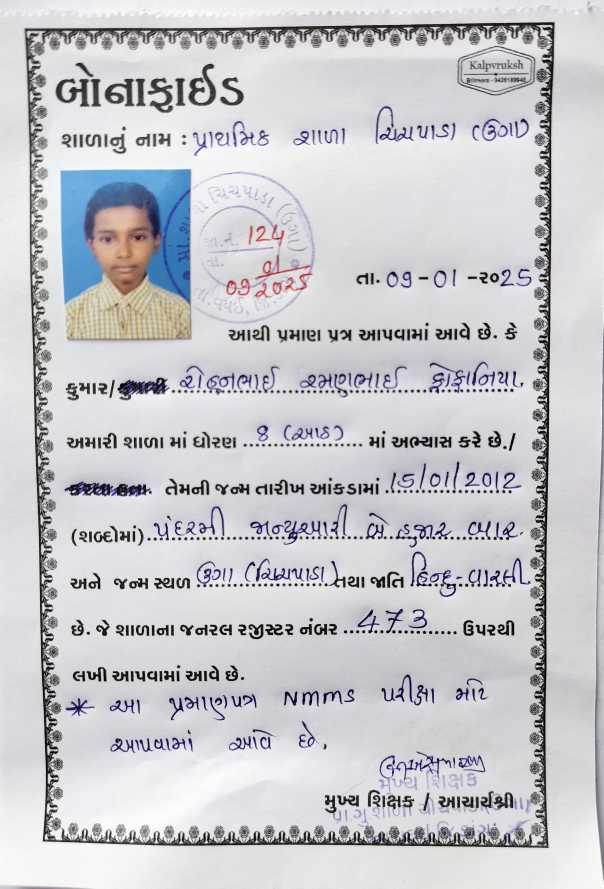 Kalpvruksh
બોનાફાઈડ
શાળાનું નામ : પ્રાથમિક શાળા ચિચપાડા (ઉગા)
ચિચપાડા (ઉગા)
જા.નં. 124
તા. 09/01/2025
તા. 09-01-૨૦25
આથી પ્રમાણ પત્ર આપવામાં આવે છે. કે
કુમાર/કુમારી રોહનભાઈ રમણભાઈ
અમારી શાળા માં ધોરણ 8 (આઠ) માં અભ્યાસ કરે છે./
કરતા હતા. તેમની જન્મ તારીખ આંકડામાં 15/01/2012
(શબ્દોમાં) પંદરમી જાન્યુઆરી બે હજાર બાર
અને જન્મ સ્થળ ઉગા (ચિચપાડા) તથા જાતિ હિન્દુ-વારલી
છે. જે શાળાના જનરલ રજીસ્ટર નંબર 473 ઉપરથી
લખી આપવામાં આવે છે.
* આ પ્રમાણપત્ર NMMS પરીક્ષા માટે
આપવામાં આવે છે.
મુખ્ય શિક્ષક
મુખ્ય શિક્ષક / આચાર્યશ્રી